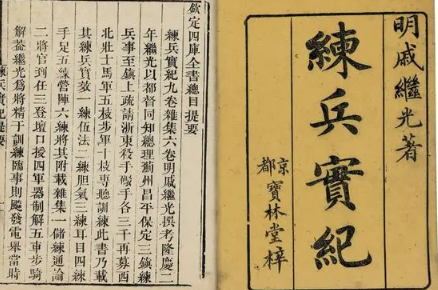 明戚繼光著
練兵實紀
京都
寶林堂梓
欽定四庫全書總目提要
練兵實紀九卷雜集六卷明戚繼光撰考隆慶二
年繼光以都督同知總理薊州昌平保定三鎮練
兵事至鎮上疏請浙東殺手礮手各三千再募西
北壯士馬軍五枝步軍十枝專聽訓練此書乃載
其練兵實效一練伍法二練胆氣三練耳目四練
手足五練營陣六練將其附載雜集一儲練通論
二將官到任三登壇口授四軍器制解五車步騎
解蓋繼光爲將精于訓練臨事則飈發電舉當時
練兵實紀 提要